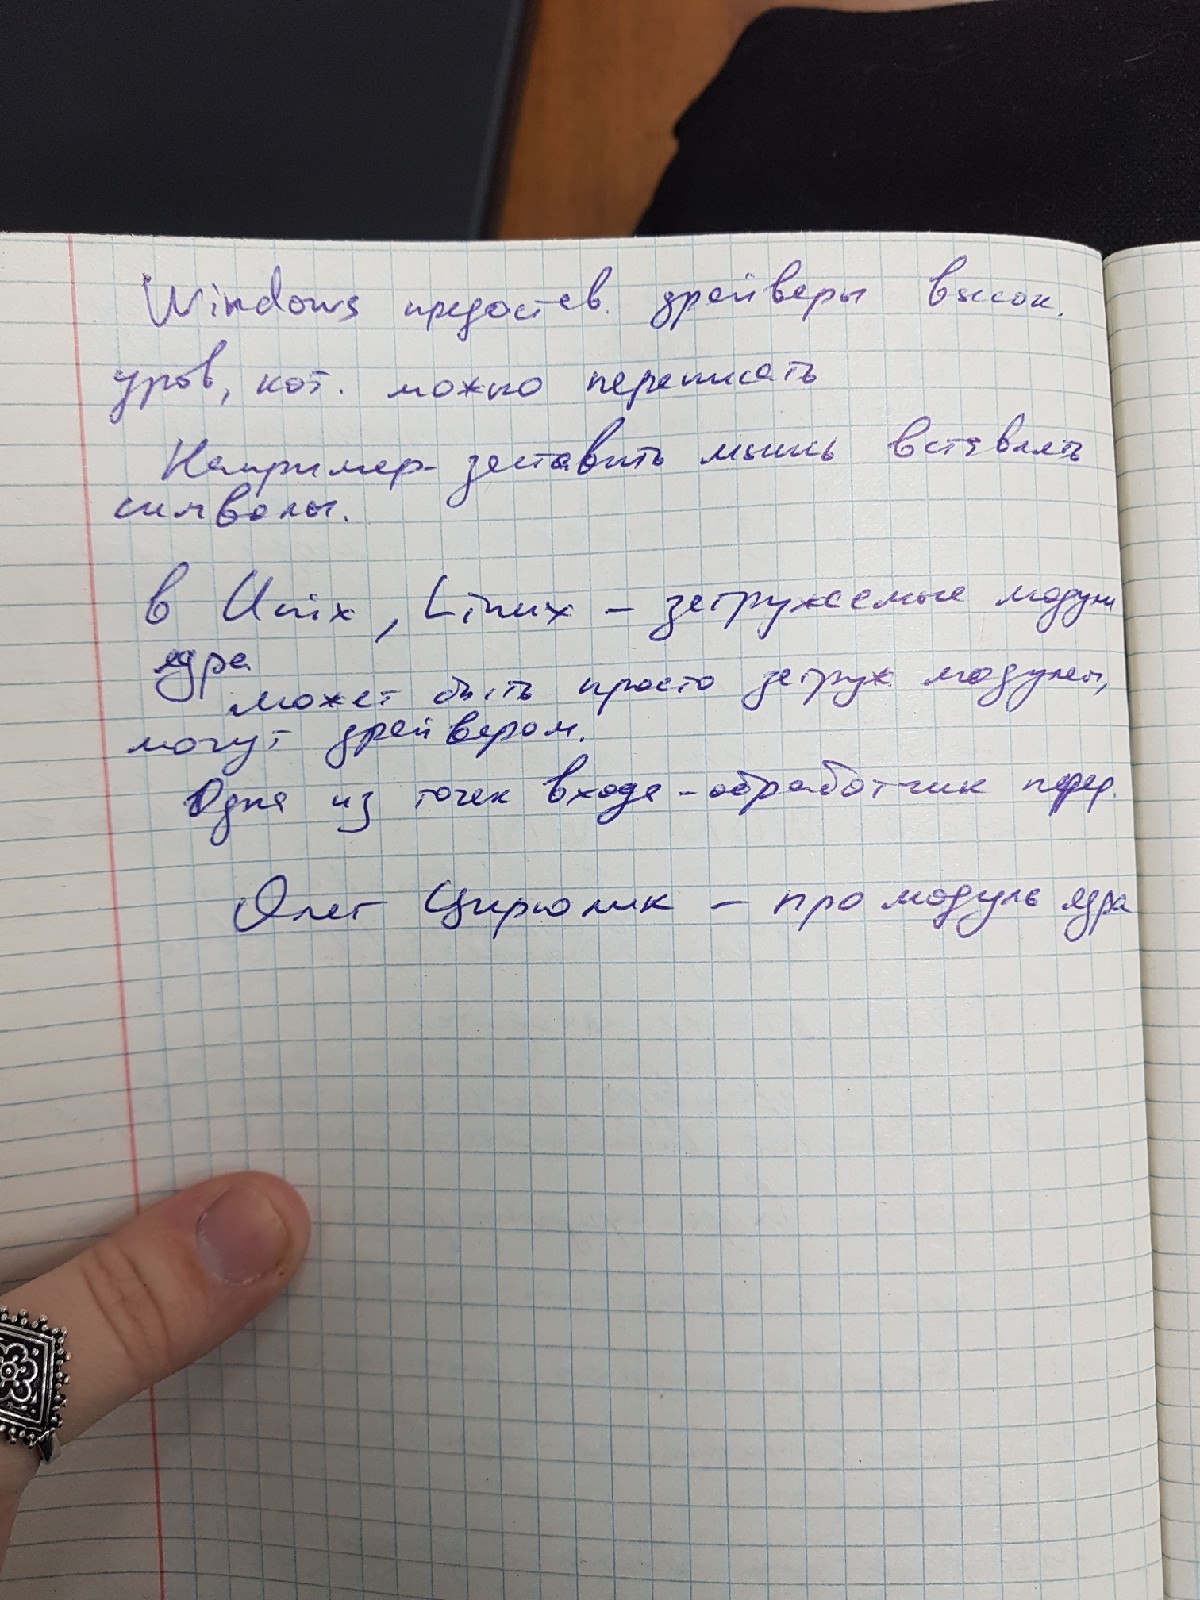 Windows предостав. драйверы высок.
уров, кот. можно переписать
Например заставить мышь вставлять
символы.
в Unix, Linux – загружаемые модули
ядра
может быть просто загруж модулем,
могут драйвером.
Одна из точек входа – обработчик
Олег Цирюлик – про модуль ядра